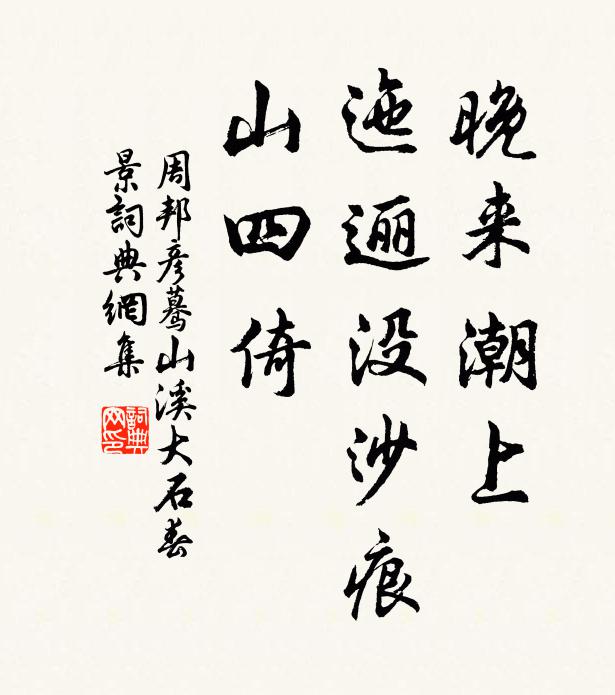 晚来潮上
迤逦没沙痕
山四倚
周邦彦蓦山溪大石春
景詞典網集
詞典网印